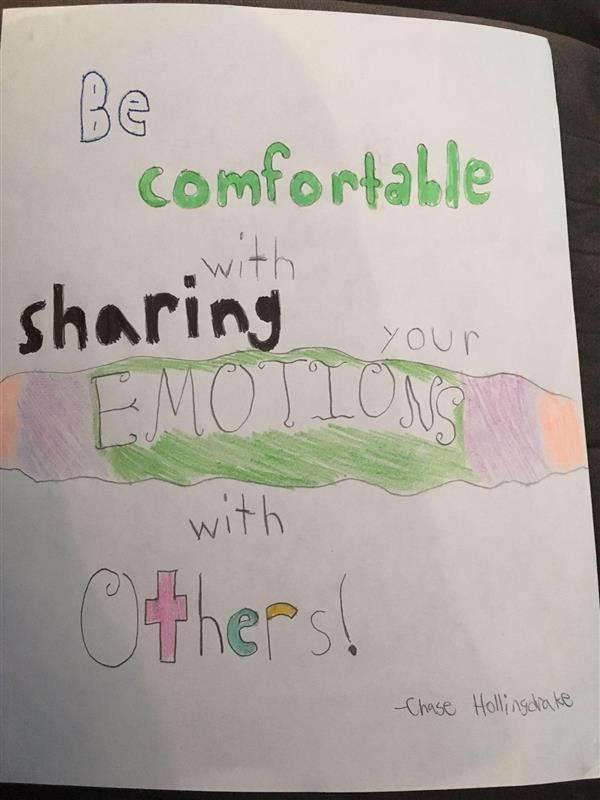 Be
comfortable
with
sharing your
EMOTIONS
with
Others!
-Chase Hollingdrake